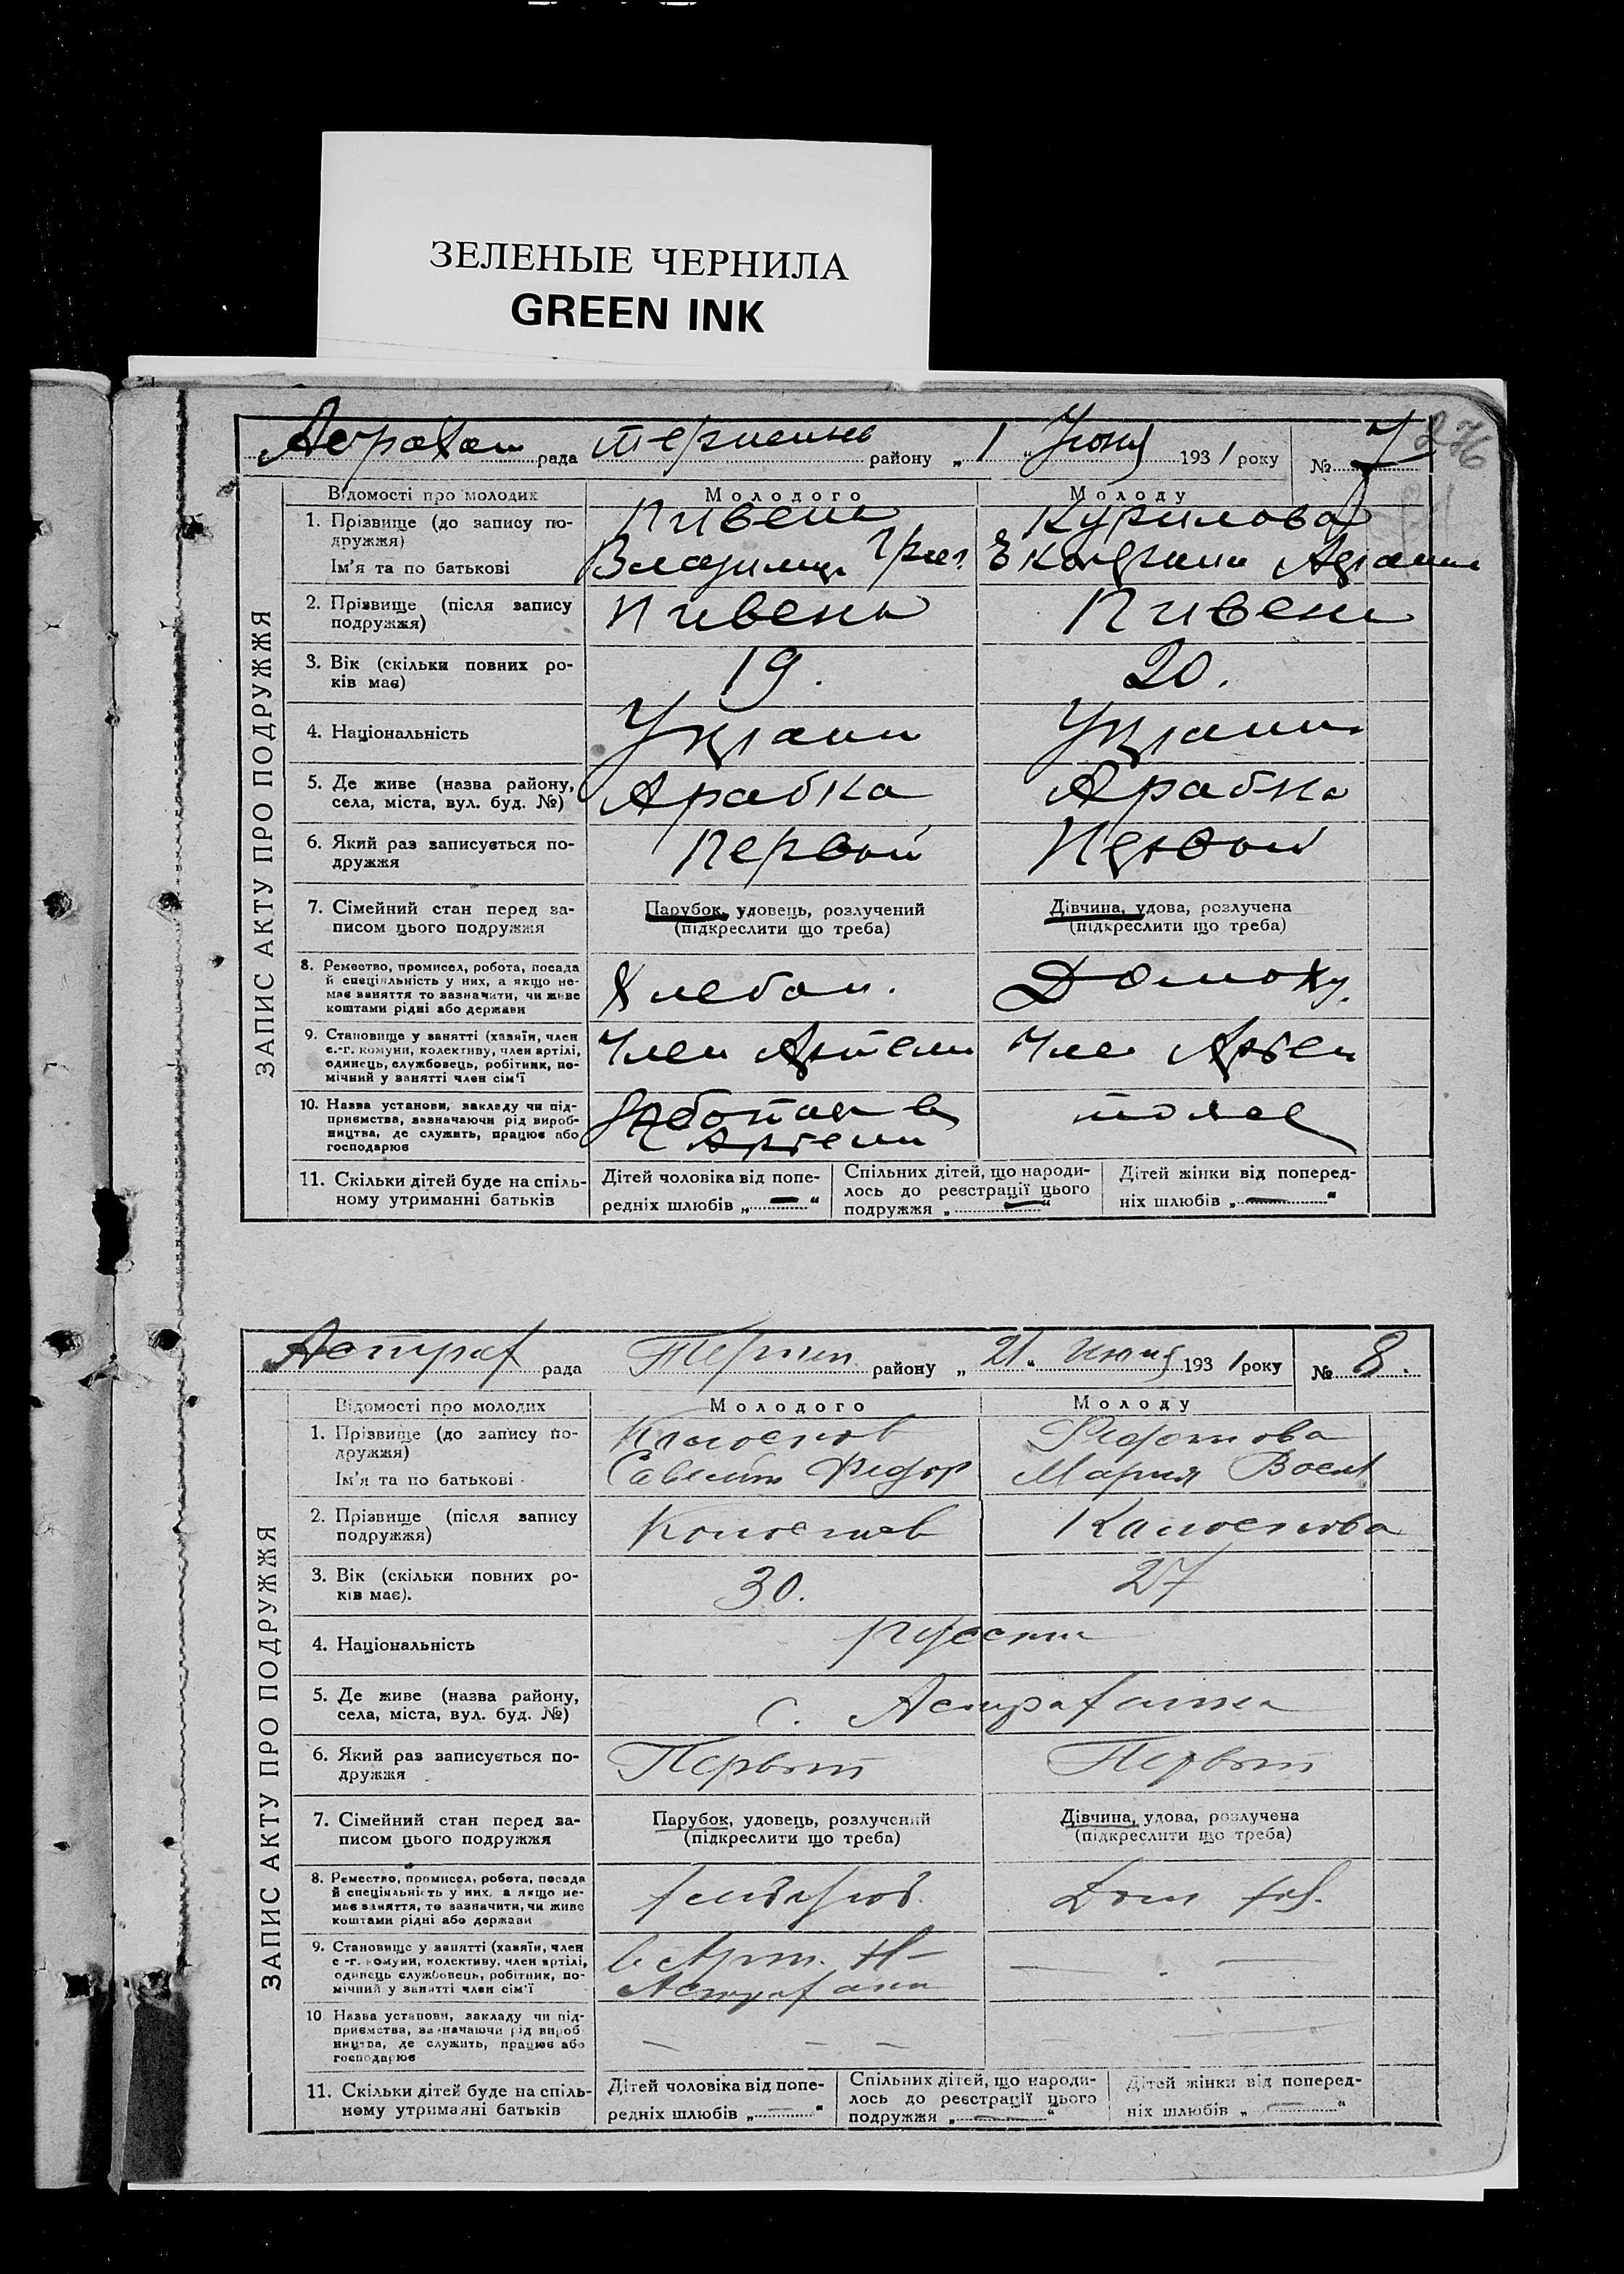 ЗЕЛЕНЫЕ ЧЕРНИЛА
GREEN INK
рада району „1“ 1931 року № 7
ЗАПИС АКТУ ПРО ПОДРУЖЖЯ
Відомості про молодих Молодого Молоду
1. Прізвище (до запису по-
дружжя) Пивень Курилова
Ім’я та по батькові
2. Прізвище (після запису
подружжя) Пивень Пивень
3. Вік (скільки повних ро-
ків має) 19. 20.
4. Національність Украин Украин
5. Де живе (назва району,
села, міста, вул. буд. №) Арабка Арабка
6. Який раз записується по-
дружжя Первый Первый
7. Сімейний стан перед за-
писом цього подружжя
Парубок, удовець, розлучений
(підкреслити що треба)
Дівчина, удова, розлучена
(підкреслити що треба)
8. Ремество, промисел, робота, посада
й спеціяльність у них, а якщо не-
має заняття то зазначити, чи живе
коштами рідні або держави
Хлебоп. Домоху.
9. Становище у занятті (хазяїн, член
с.-г. комуни, колективу, член артілі,
одинець, службовець, робітник, по-
мічний у занятті член сім’ї
Член Артели Член Артел
10. Назва установи, закладу чи під-
приємства, зазначаючи рід вироб-
ництва, де служить, працює або
господарює
в Артели
11. Скільки дітей буде на спіль-
ному утриманні батьків
Дітей чоловіка від попе-
редніх шлюбів „—“
Спільних дітей, що народи-
лось до реєстрації цього
подружжя „—“
Дітей жінки від поперед-
ніх шлюбів „—“
Астрах рада Терпен району „21“ 1931 року № 8.
ЗАПИС АКТУ ПРО ПОДРУЖЖЯ
Відомості про молодих Молодого Молоду
1. Прізвище (до запису по-
дружжя) Федотова
Ім’я та по батькові Федор Мария
2. Прізвище (після запису
подружжя)
3. Вік (скільки повних ро-
ків має). 30. 27
4. Національність русские
5. Де живе (назва району,
села, міста, вул. буд. №) с. Астраханка
6. Який раз записується по-
дружжя Первый Первый
7. Сімейний стан перед за-
писом цього подружжя
Парубок, удовець, розлучений
(підкреслити що треба)
Дівчина, удова, розлучена
(підкреслити що треба)
8. Ремество, промисел, робота, посада
й спеціяльність у них, а якщо не-
має заняття, то зазначити, чи живе
коштами рідні або держави
Дом хоз.
9. Становище у занятті (хазяїн, член
с.-г. комуни, колективу, член артілі,
одинець службовець, робітник, по-
мічний у занятті член сім’ї
в Арт. Н-
— . —
10. Назва установи, закладу чи під-
приємства, зазначаючи рід вироб-
ництва, де служить, працює або
господарює
— — —
11. Скільки дітей буде на спіль-
ному утриманні батьків
Дітей чоловіка від попе-
редніх шлюбів „—“
Спільних дітей, що народи-
лось до реєстрації цього
подружжя „—“
Дітей жінки від поперед-
ніх шлюбів „—“